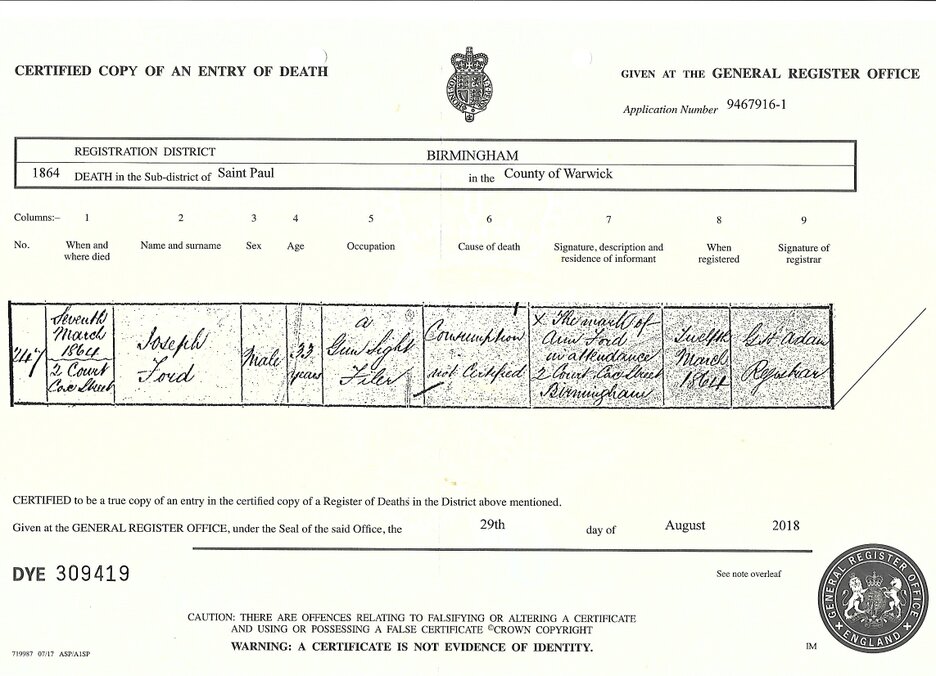 CERTIFIED COPY OF AN ENTRY OF DEATH
GIVEN AT THE GENERAL REGISTER OFFICE
Application Number 9467916-1
REGISTRATION DISTRICT BIRMINGHAM
1864 DEATH in the Sub-district of Saint Paul in the County of Warwick
Columns:– 1 2 3 4 5 6 7 8 9
No. When and where died Name and surname Sex Age Occupation Cause of death Signature, description and residence of informant When registered Signature of registrar
247
Seventh
March
1864
2 Court
Cox Street
Joseph
Ford
Male
33
years
a
Gun Sight
Filer
Consumption
not Certified
X The mark of
Ann Ford
in attendance
2 Court Cox Street
Birmingham
Twelfth
March
1864
Registrar
CERTIFIED to be a true copy of an entry in the certified copy of a Register of Deaths in the District above mentioned.
Given at the GENERAL REGISTER OFFICE, under the Seal of the said Office, the 29th day of August 2018
DYE 309419
See note overleaf
CAUTION: THERE ARE OFFENCES RELATING TO FALSIFYING OR ALTERING A CERTIFICATE
AND USING OR POSSESSING A FALSE CERTIFICATE ©CROWN COPYRIGHT
WARNING: A CERTIFICATE IS NOT EVIDENCE OF IDENTITY.
719987 07/17 ASP/A1SP
IM
GENERAL REGISTER OFFICE
ENGLAND